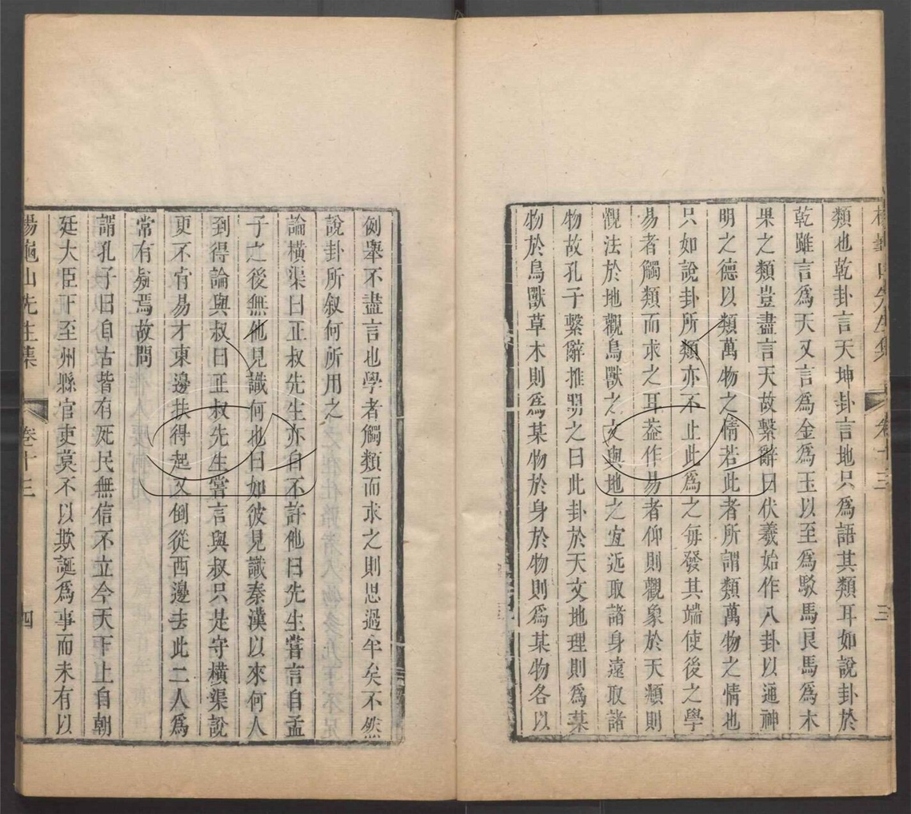 楊龜山先生集
卷十三
三
類也乾卦言天坤卦言地只爲語其類耳如說卦於
乾雖言爲天又言爲金爲玉以至爲駁馬良馬爲木
果之類豈盡言天故繫辭曰伏羲始作八卦以通神
明之德以類萬物之情若此者所謂類萬物之情也
只如說卦所類亦不止此爲之每發其端使後之學
易者觸類而求之耳蓋作易者仰則觀象於天類則
觀法於地觀鳥獸之文與地之宜近取諸身遠取諸
物故孔子繫辭推明之曰此卦於天文地理則爲某
物於鳥獸草木則爲某物於身於物則爲某物各以
例舉不盡言也學者觸類而求之則思過半矣不然
說卦所叙何所用之
論橫渠曰正叔先生亦自不許他曰先生嘗言自孟
子之後無他見識何也曰如彼見識秦漢以來何人
到得論與叔曰正叔先生嘗言與叔只是守橫渠說
更不肯易才東邊扶得起又倒從西邊去此二人爲
常有疑焉故問
謂孔子曰自古皆有死民無信不立今天下上自朝
廷大臣下至州縣官吏莫不以欺誕爲事而未有以
楊龜山先生集
卷十三
四